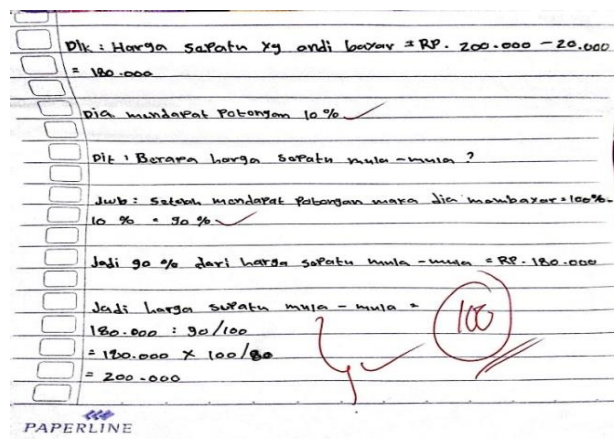 Dik : Harga sapatu yg andi bayar = RP. 200.000 - 20.000
= 180.000
Dia mendapat potongan 10 %
Dit : Berapa harga sapatu mula - mula ?
Jwb : Setelah mendapat potongan maka dia membayar = 100% -
10 % = 90 %
Jadi 90 % dari harga sapatu mula - mula = RP. 180.000
Jadi harga supatu mula - mula =
180.000 : 90/100
= 180.000 X 100/90
= 200.000
100
PAPERLINE